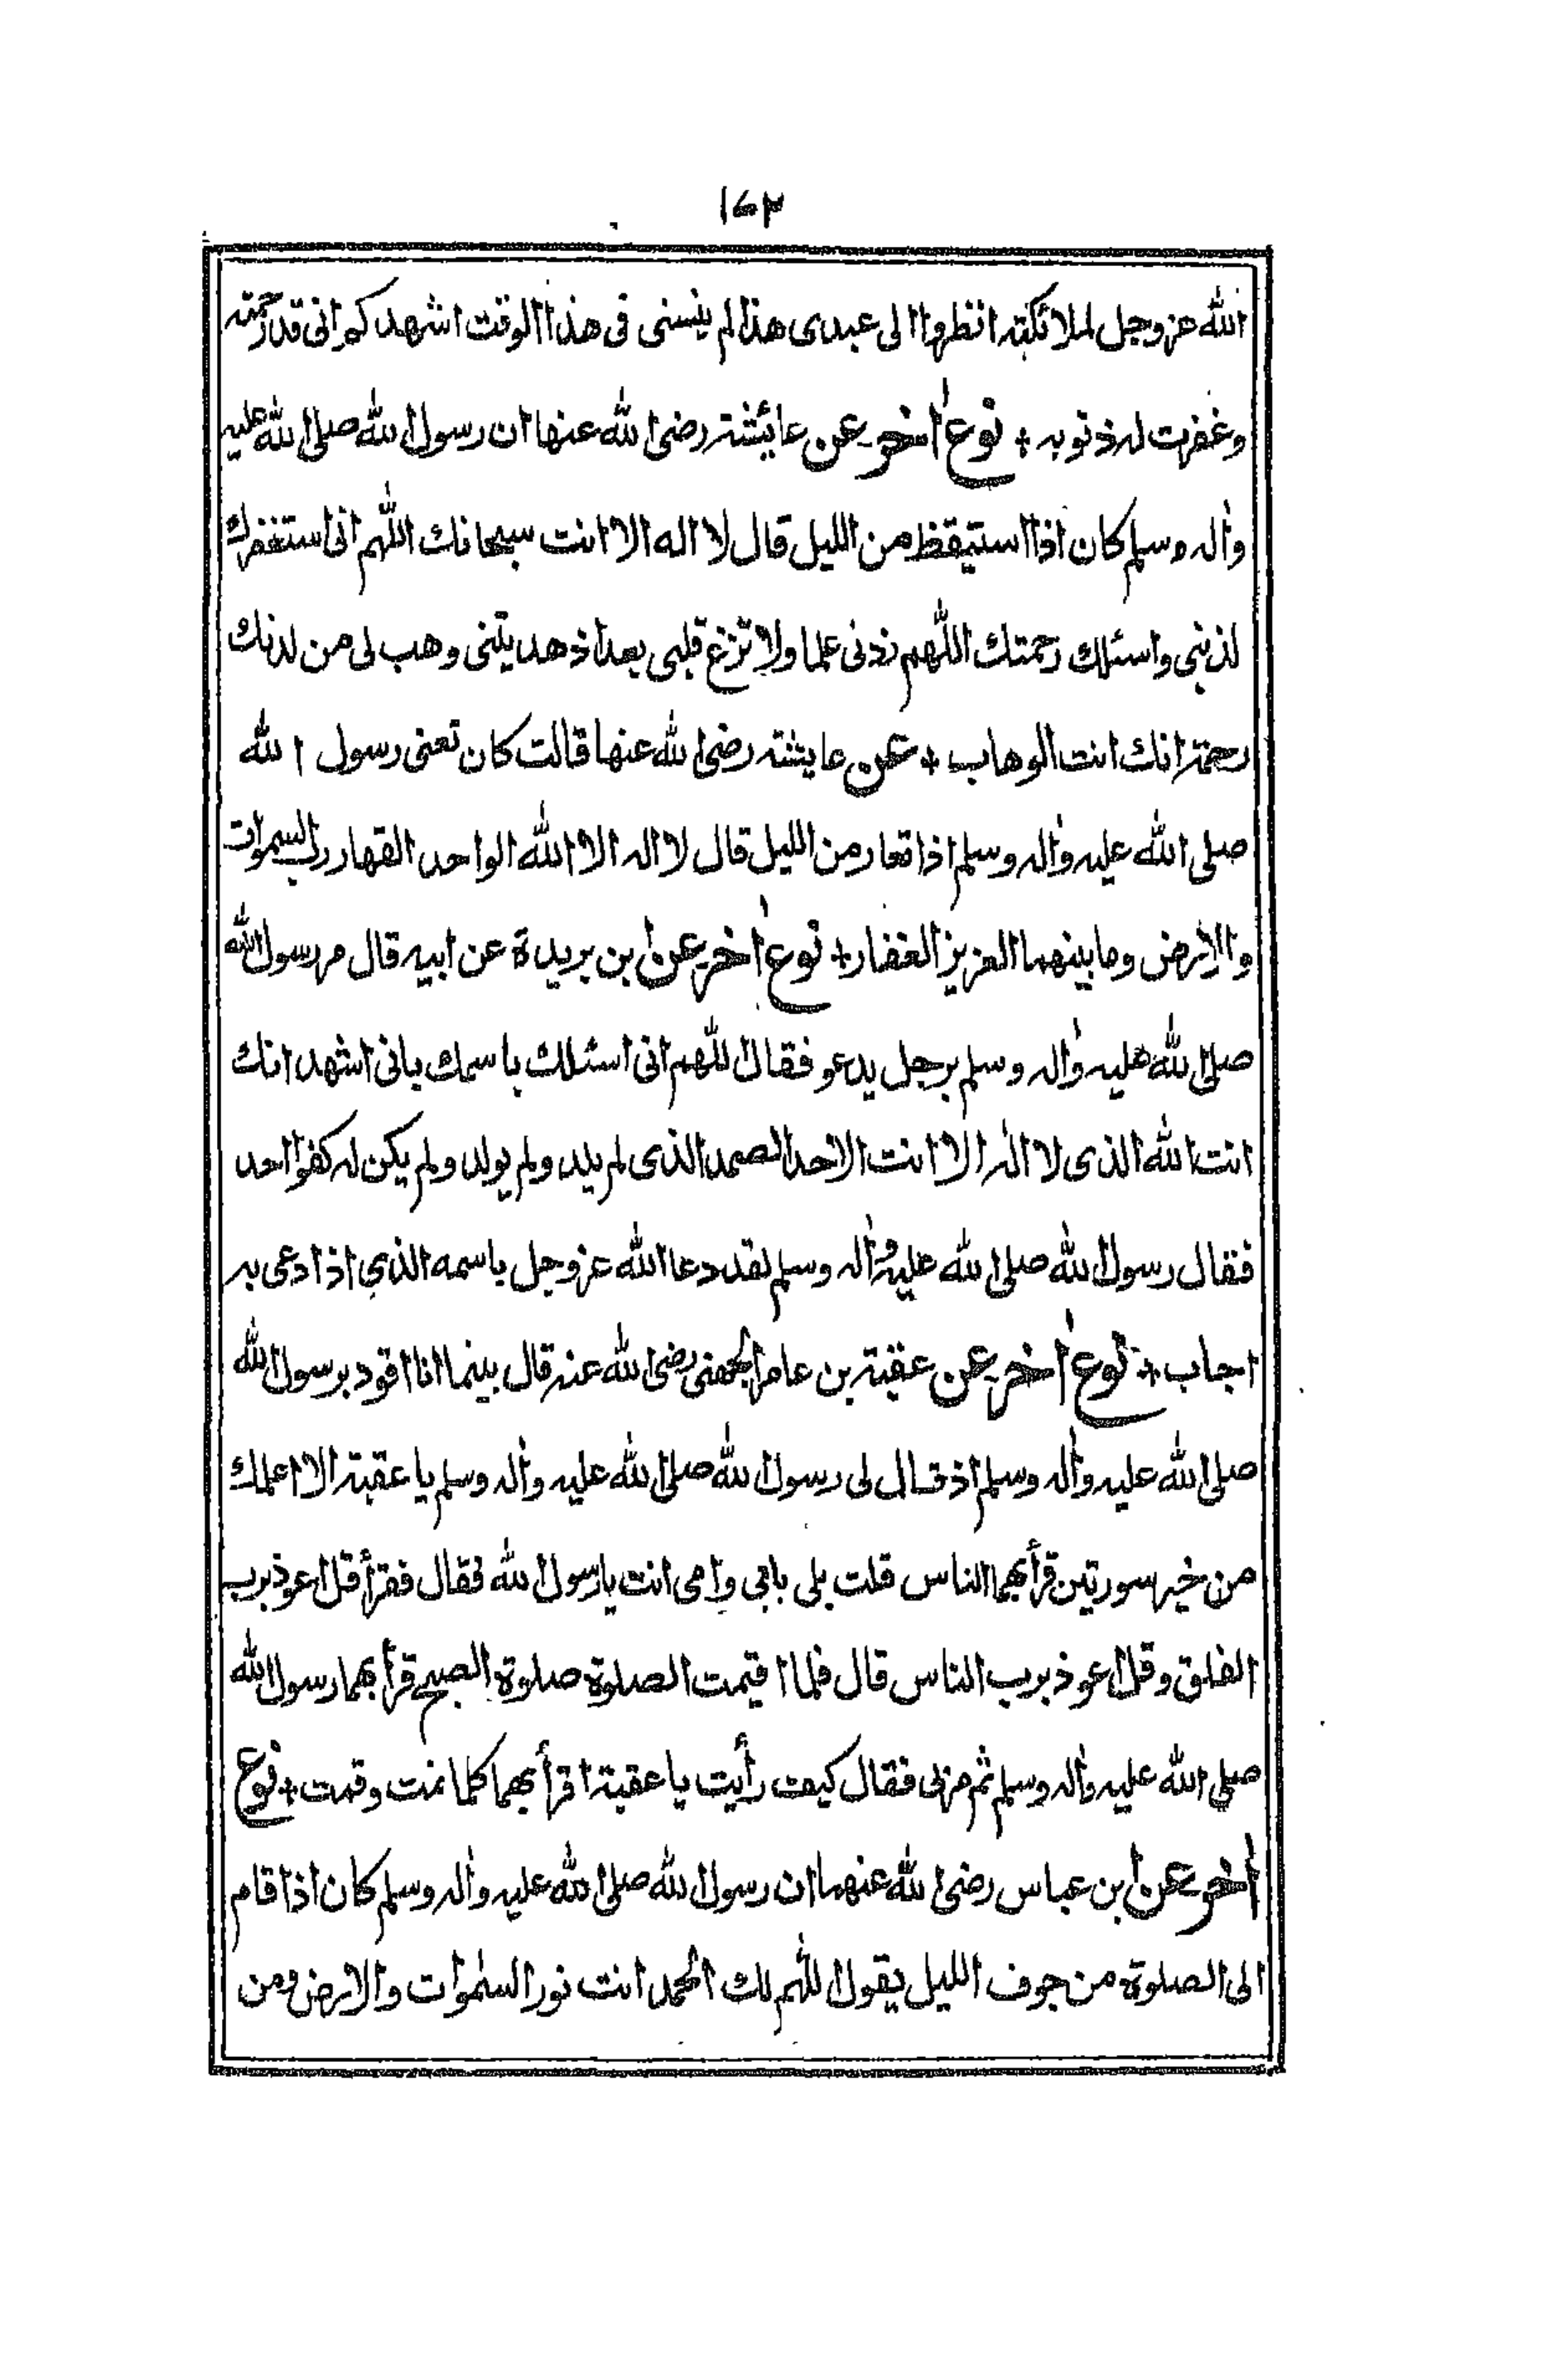 ١٧٣
الله عزوجل لملائكته انظروا الى عبدى هذا لم ينسنى فى هذا الوقت اشهدكم انى قد رحمته
وغفرت له ذنوبه + نوع اٰخر عن عائشة رضى الله عنها ان رسول الله صلى الله عليه
واٰله وسلم كان اذا استيقظ من الليل قال لا اله الا انت سبحانك اللهم انى استغفرك
لذنبى واسئلك رحمتك اللهم زدنى علما ولا تزغ قلبى بعد اذ هديتنى وهب لى من لدنك
رحمة انك انت الوهاب + عن عايشة رضى الله عنها قالت كان تعنى رسول الله
صلى الله عليه واٰله وسلم اذا تعار من الليل قال لا اله الا الله الواحد القهار رب السموات
والارض وما بينهما العزيز الغفار + نوع اٰخر عن ابن بريدة عن ابيه قال مر رسول الله
صلى الله عليه واٰله وسلم برجل يدعو فقال اللهم انى اسئلك باسمك بانى اشهد انك
انت الله الذى لا اله الا انت الاحد الصمد الذى لم يلد ولم يولد ولم يكن له كفوا احد
فقال رسول الله صلى الله عليه واٰله وسلم لقد دعا الله عزوجل باسمه الذي اذا دعى به
اجاب + نوع اٰخر عن عقبة بن عامر الجهنى رضى الله عنه قال بينما انا اقود برسول الله
صلى الله عليه واٰله وسلم اذ قال لى رسول الله صلى الله عليه واٰله وسلم يا عقبة الا اعلمك
من خير سورتين قرأ بهما الناس قلت بلى بابى وامى انت يا رسول الله فقال فقرأ قل اعوذ برب
الفلق وقل اعوذ برب الناس قال فلما اقيمت الصلوة صلوة الصبح قرأ بهما رسول الله
صلى الله عليه واٰله وسلم ثم مر بى فقال كيف رأيت يا عقبة اقرأ بهما كلما نمت وقمت + نوع
اٰخر عن ابن عباس رضى الله عنهما ان رسول الله صلى الله عليه واٰله وسلم كان اذا قام
الى الصلوة من جوف الليل يقول اللهم لك الحمد انت نور السمٰوات والارض ومن